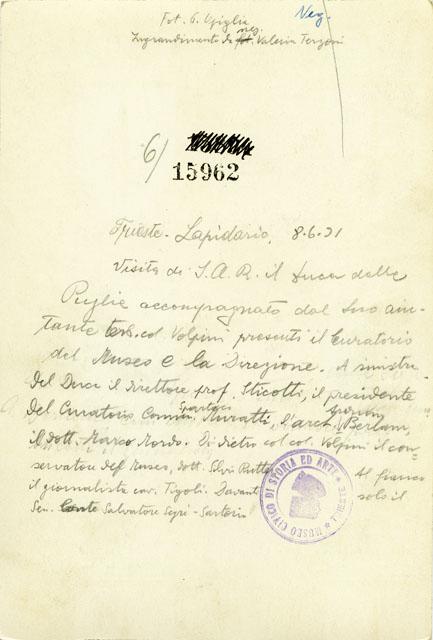 Fot. G. Ugiglia
Neg.
neg.
Ingrandimento da Valeria Terzoni
6/
15962
Trieste - Lapidario, 8.6.31
Visita di S.A.R. il Duca delle
Puglie accompagnato dal suo aiu-
tante col Volpini presenti il Curatorio
del Museo e la Direzione. A sinistra
del Duca il direttore prof. Sticotti, il presidente
del Curatorio Comm. Spartaco Muratti, l'arch. Berlam,
il dott. Marco Mordo. Di dietro col col. Volpini il con-
servatore del Museo, dott. Silvio Rutteri
il giornalista cav. Tigoli. Davanti
Al fianco
solo il
Sen. Conte Salvatore Segrè-Sartorio
MUSEO CIVICO DI STORIA ED ARTE
TRIESTE